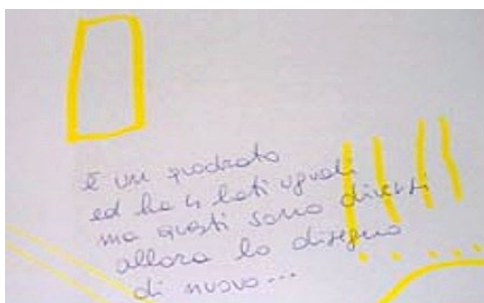 è un quadrato
ed ha 4 lati uguali
ma questi sono diversi
allora lo disegno
di nuovo...